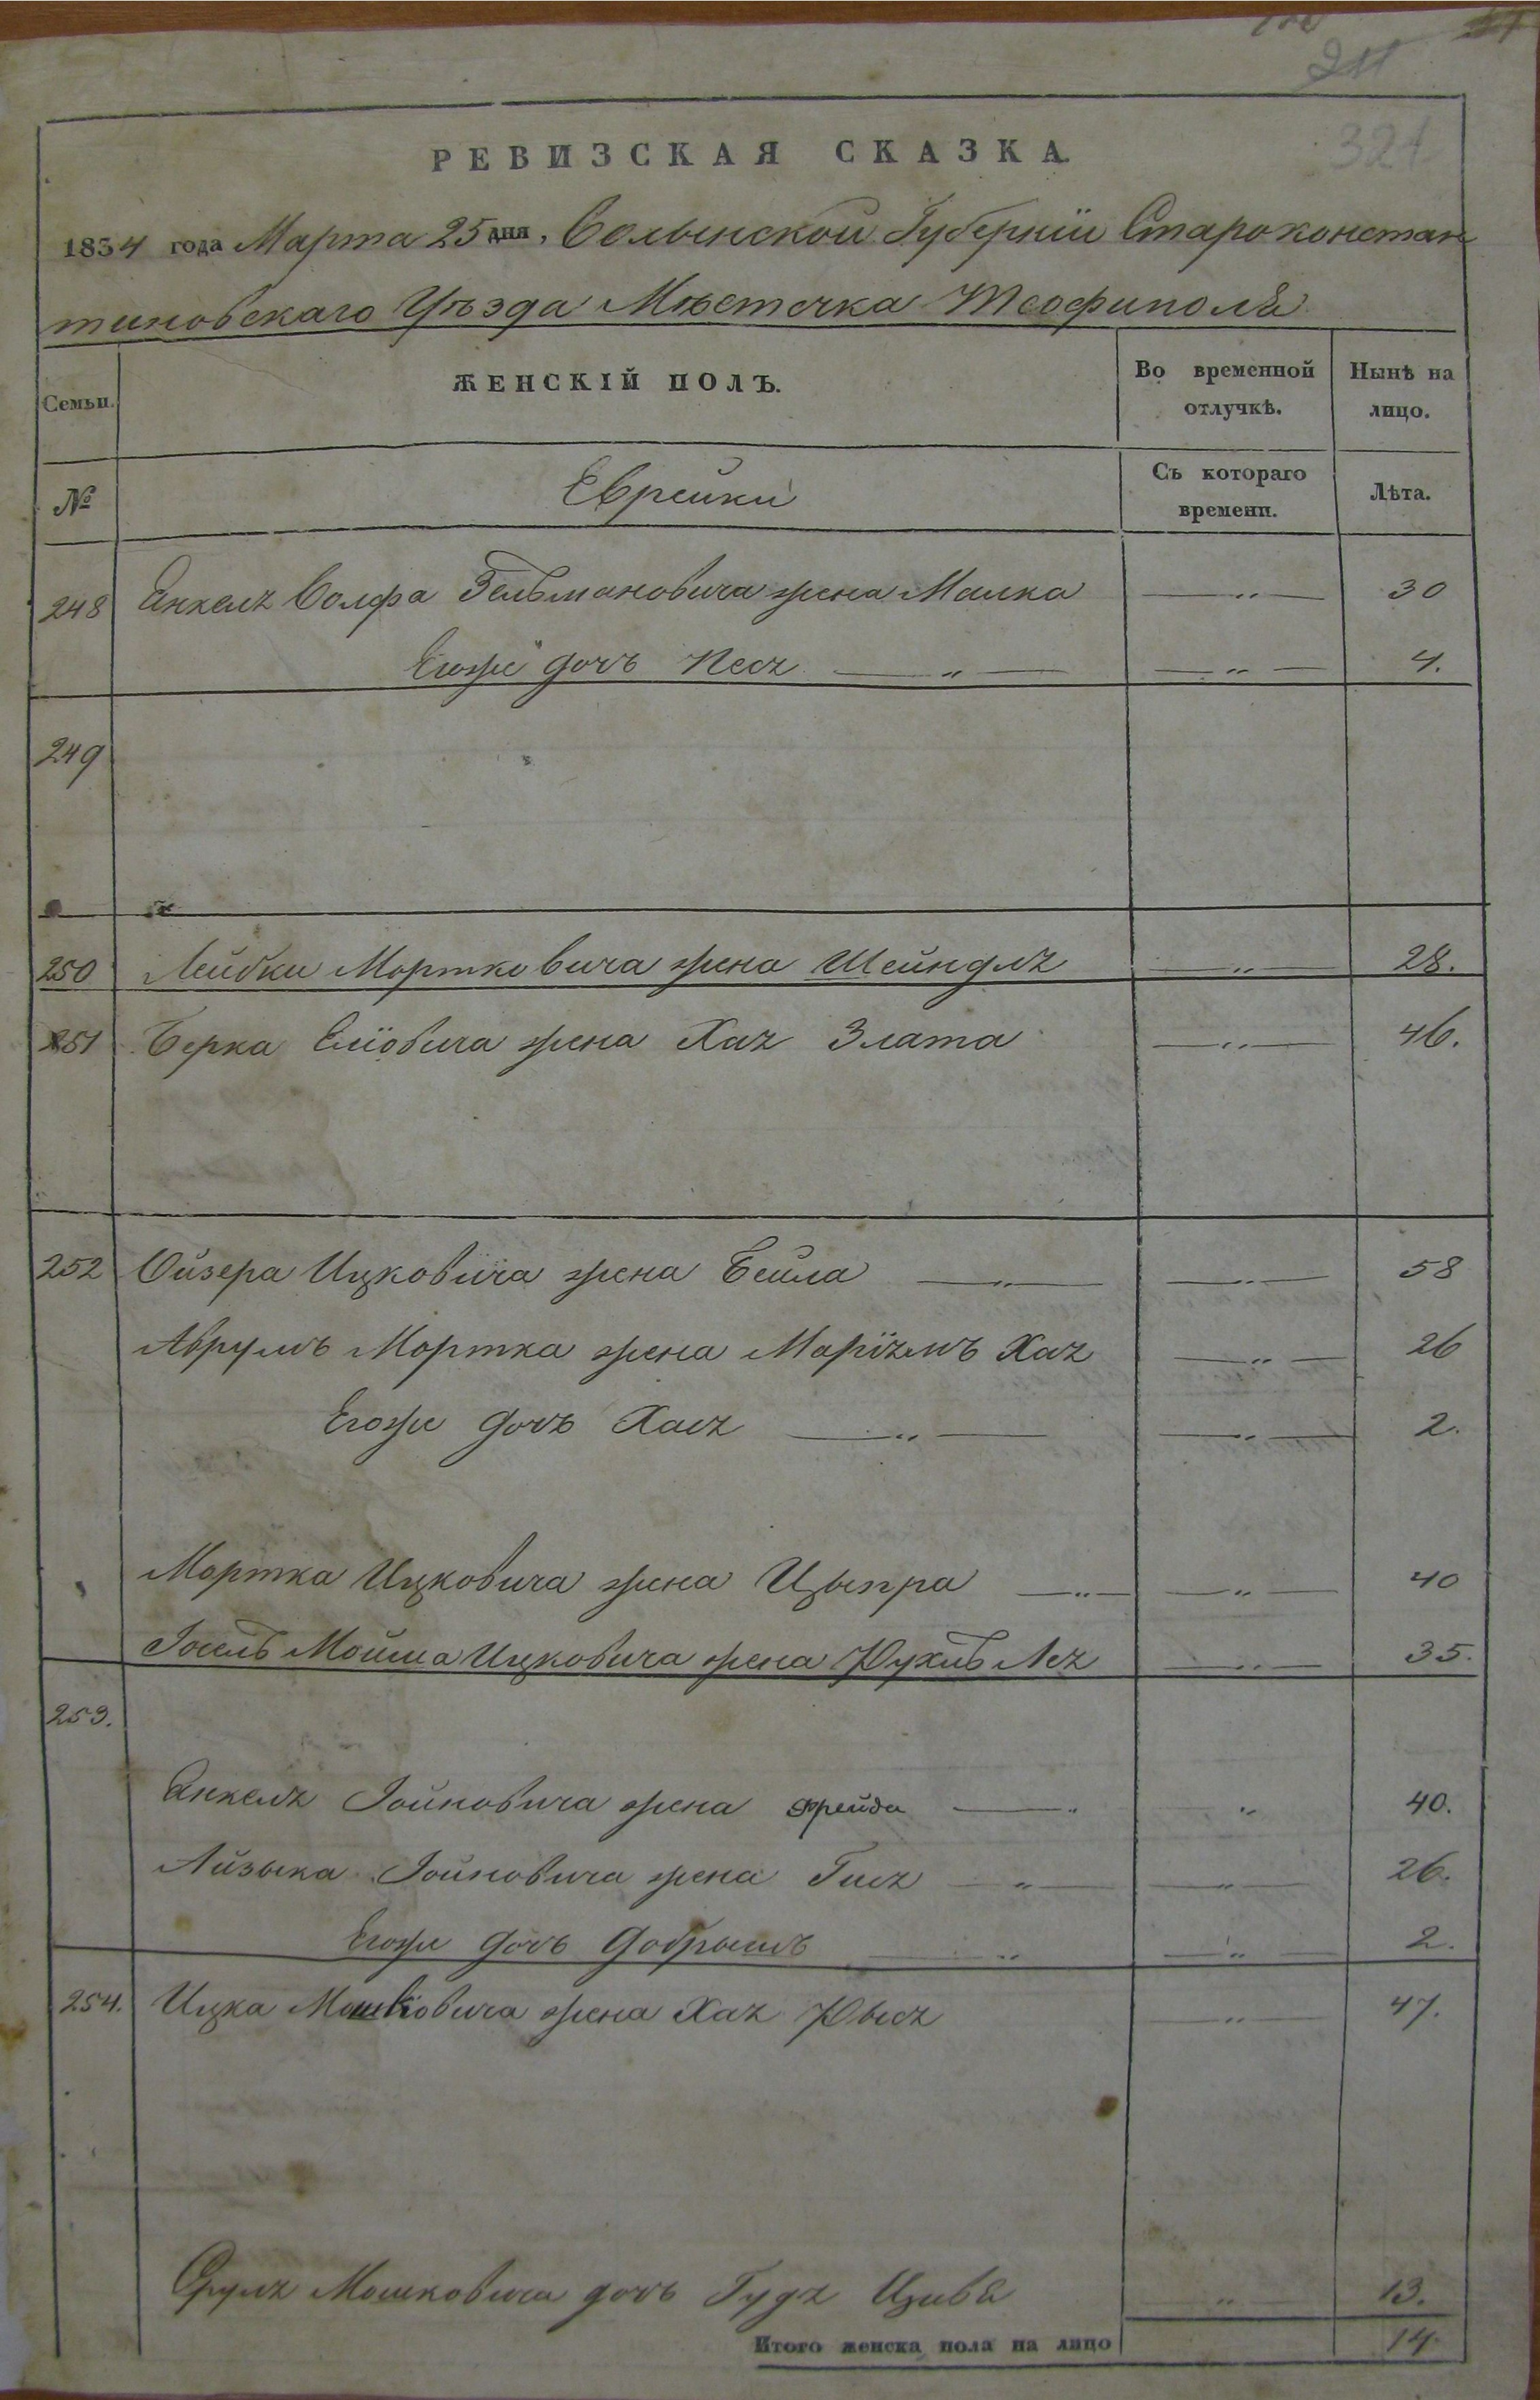 211
321
РЕВИЗСКАЯ СКАЗКА
1834 года Марта 25 дня, Волынской Губерніи Староконстан
тиновскаго Уѣзда Мѣстечка Теофиполя
Семьи. ЖЕНСКІЙ ПОЛЪ. Во временной отлучкѣ. Нынѣ на лицо.
№ Еврейки Съ котораго времени. Лѣта.
248 Янкеля Волфа Зельмановича жена Малка —„— 30
Егоже дочь Песя —„— —„— 4.
249
250 Лейбки Мортковича жена Шейндля —„— 28.
251 Берка Еліовича жена Хая Злата —„— 46.
252 Ойзера Ицковича жена Бейла —„— —„— 58
Аврумъ Мортка жена Маріямъ Хая —„— 26
Егоже дочь Хася —„— —„— 2.
Мортка Ицковича жена Цыпра —„— —„— 40
Іосель Мойша Ицковича жена Рухль Лея —„— 35.
253.
Янкеля Іойновича жена Фрейда —„ „ 40.
Айзыка Іойновича жена Гися —„— —„— 26.
Егоже дочь Добрышъ —„ —„— 2.
254. Ицка Мошковича жена Хая Рыся —„— 47.
Сруля Мошковича дочь Гудя Цивя —„— 13.
Итого женска пола на лицо 14.